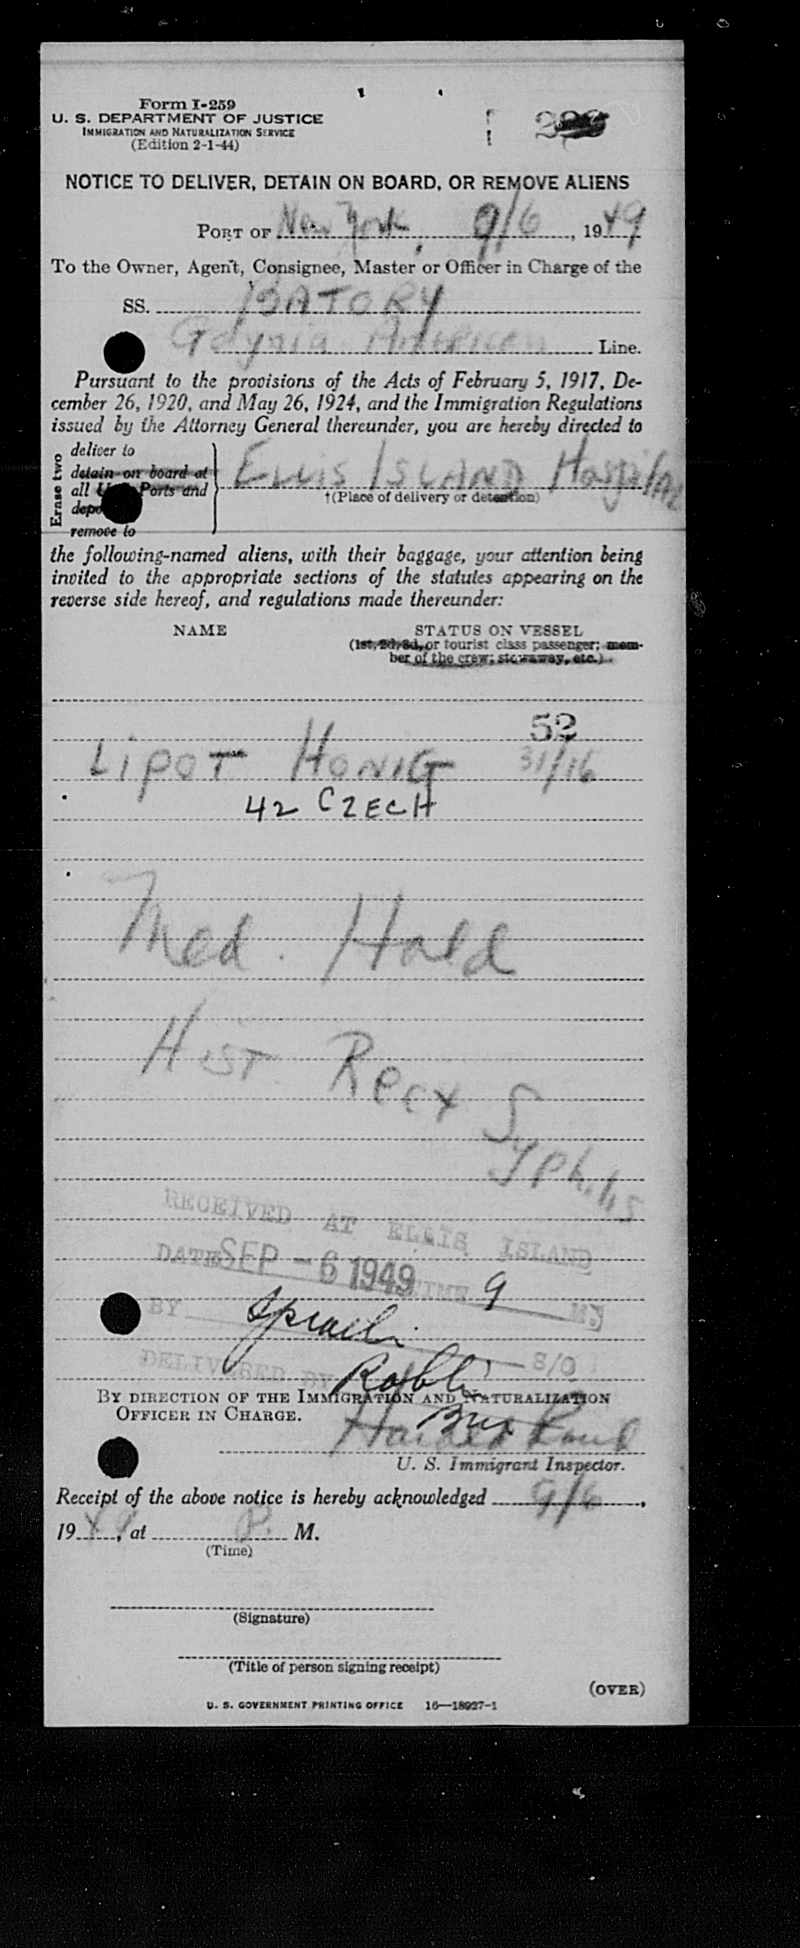 Form I-259
U. S. DEPARTMENT OF JUSTICE
IMMIGRATION AND NATURALIZATION SERVICE
(Edition 2-1-44)
NOTICE TO DELIVER, DETAIN ON BOARD, OR REMOVE ALIENS
PORT OF New York, 9/6, 1949
To the Owner, Agent, Consignee, Master or Officer in Charge of the
SS. BATORY
Gdynia American Line.
Pursuant to the provisions of the Acts of February 5, 1917, De-
cember 26, 1920, and May 26, 1924, and the Immigration Regulations
issued by the Attorney General thereunder, you are hereby directed to
Erase two
deliver to
detain on board at
all Ports and
remove to
ELLIS ISLAND Hospital
†(Place of delivery or detention)
the following-named aliens, with their baggage, your attention being
invited to the appropriate sections of the statutes appearing on the
reverse side hereof, and regulations made thereunder:
NAME STATUS ON VESSEL
(1st, 2d, 3d, or tourist class passenger; mem-
ber of the crew; stowaway, etc.)
52
LIPOT HONIG 31/16
42 CZECH
Med. Hold
HIST Recx Syphilis
RECEIVED AT ELLIS ISLAND
DATE SEP - 6 1949 TIME 9 M
BY S/O
DELIVERED BY
BY DIRECTION OF THE IMMIGRATION AND NATURALIZATION
OFFICER IN CHARGE.
U. S. Immigrant Inspector.
Receipt of the above notice is hereby acknowledged 9/6,
1949, at P. M.
(Time)
(Signature)
(Title of person signing receipt)
(OVER)
U. S. GOVERNMENT PRINTING OFFICE 16—18927-1